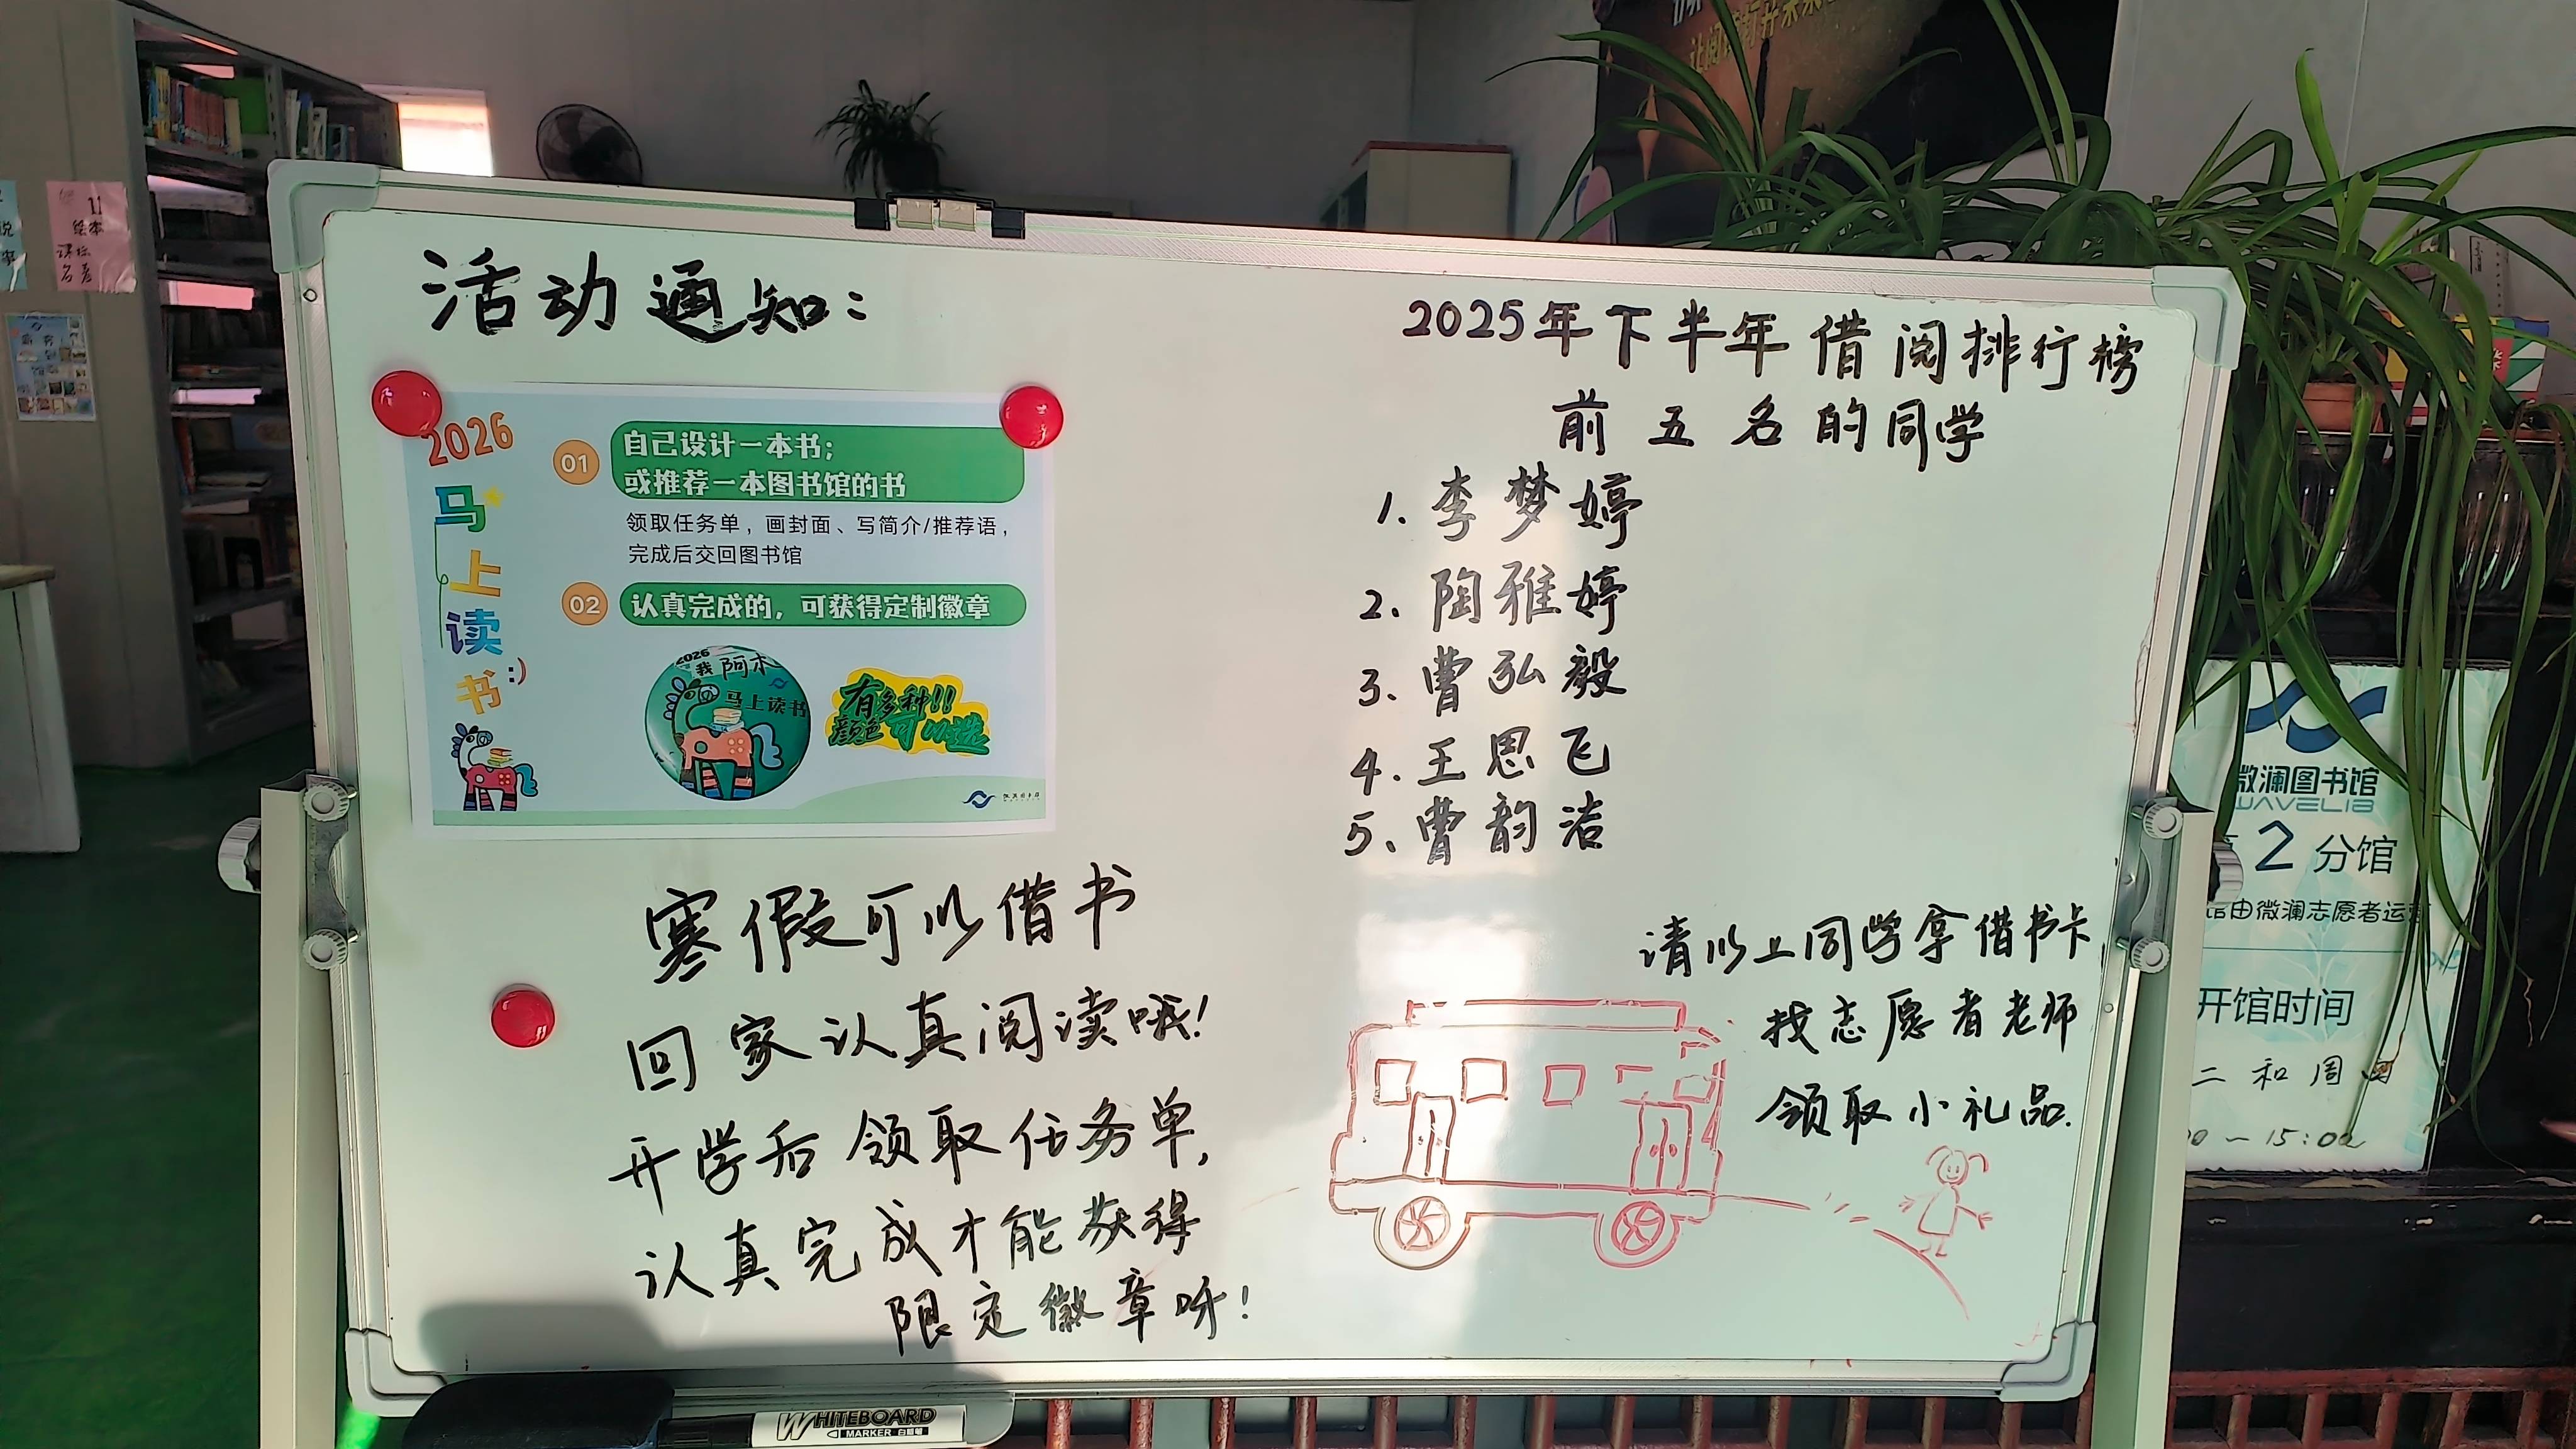 活动通知：
2026
马上读书:)
01
自己设计一本书；
或推荐一本图书馆的书
领取任务单，画封面、写简介/推荐语，
完成后交回图书馆
02
认真完成的，可获得定制徽章
2026
我 阿木
马上读书
有多种!!
颜色可以选
寒假可以借书
回家认真阅读哦!
开学后领取任务单,
认真完成才能获得
限定徽章呀!
2025年下半年借阅排行榜
前五名的同学
1.李梦婷
2.陶雅婷
3、曹弘毅
4.王思飞
5、曹韵洁
请以上同学拿借书卡,
找志愿者老师
领取小礼品.
微澜图书馆
WAVELIB
2分馆
馆由微澜志愿者运营
开馆时间
二和周四
00～15:00
11
绘本
课标
名著
WHITEBOARD
MARKER 白板笔